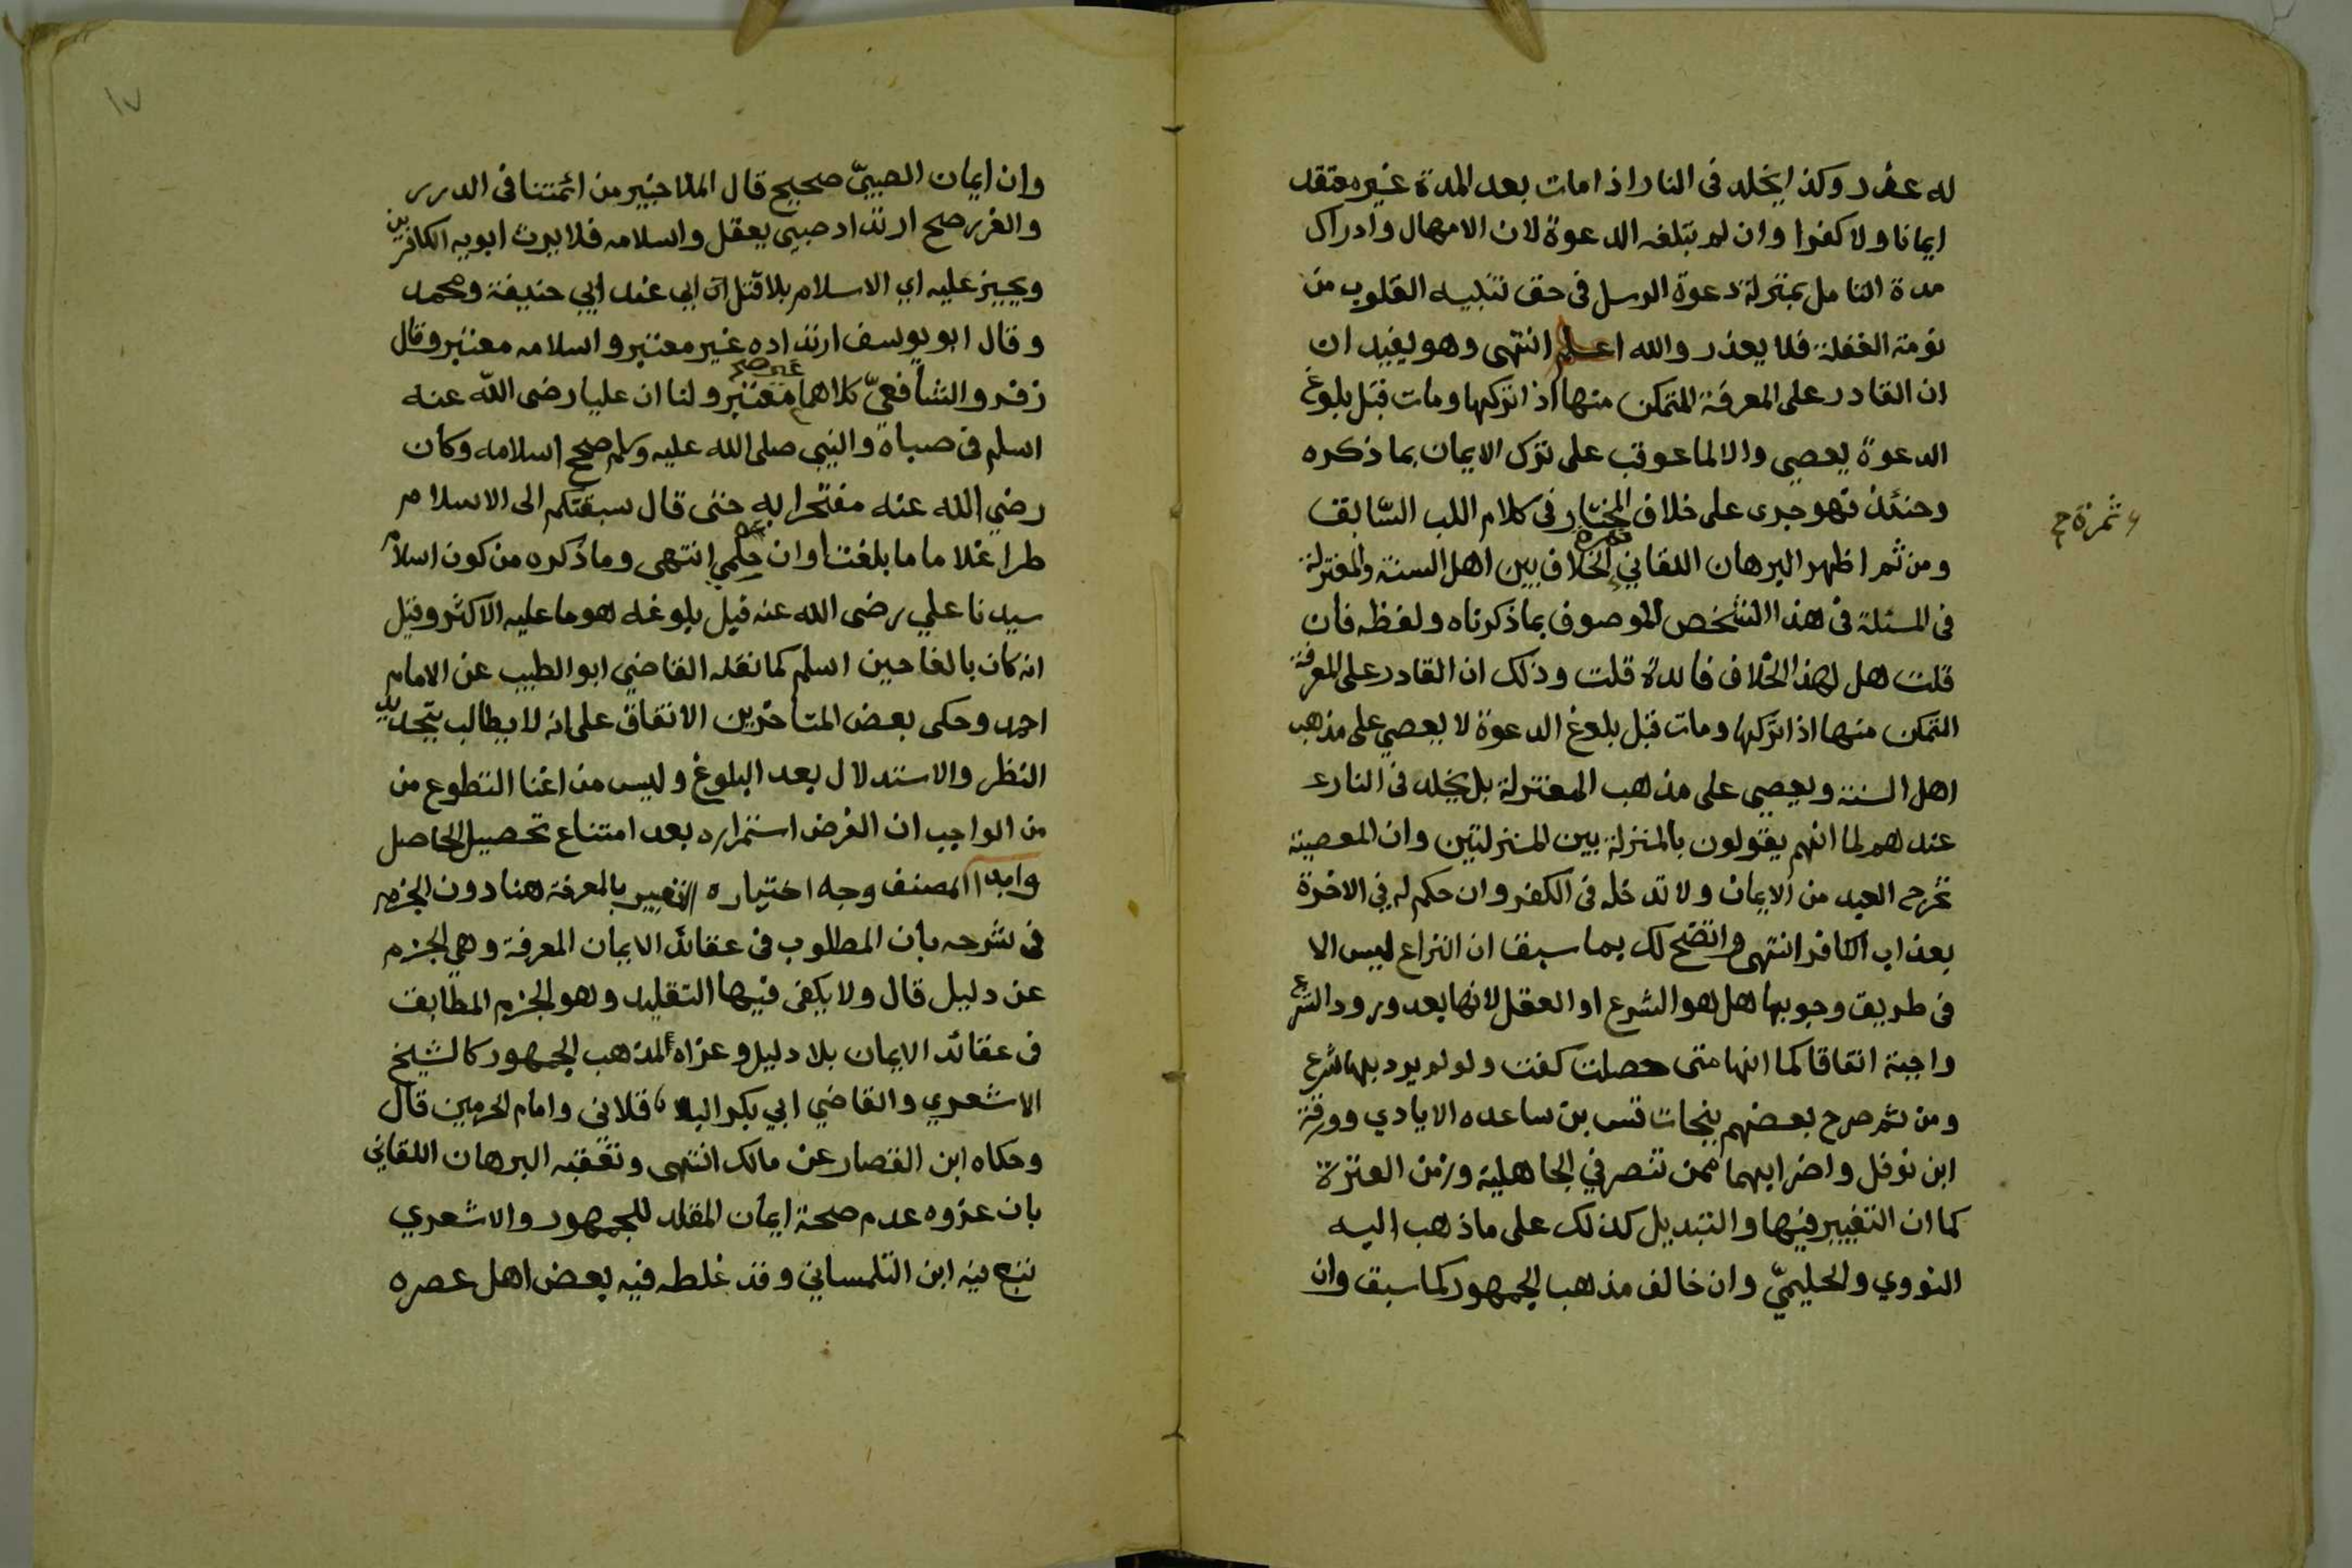 له عذر وكذا يخلد فى النار اذا مات بعد المدة غير معتقد
ايمانا ولا كفرا وان لم تبلغه الدعوة لان الامهال وادراك
مدة التامل بمنزلة دعوة الرسل فى حق تنبيه القلوب من
نومة الغفلة فلا يعذر والله اعلم انتهى وهو يفيد ان
ان القادر على المعرفة المتمكن منها اذا تركها ومات قبل بلوغ
الدعوة يعصي والا لما عوقب على ترك الايمان بما ذكره
وحنئذ فهو جرى على خلاف المختار فى كلام اللب السابق
ومن ثم اظهر البرهان اللقاني ثمرة الخلاف بين اهل السنة والمعتزلة
ثمرة ح
فى المسئلة فى هذا الشخص الموصوف بما ذكرناه ولفظه فان
قلت هل لهذا الخلاف فائدة قلت وذلك ان القادر على المعرفة
المتمكن منها اذا تركها ومات قبل بلوغ الدعوة لا يعصي على مذهب
اهل السنة ويعصي على مذهب المعتزلة بل يخلد فى النار
عندهم لما انهم يقولون بالمنزلة بين المنزلتين وان المعصية
تخرج العبد من الايمان ولا تدخله فى الكفر وان حكم له في الاخرة
بعذاب الكافر انتهى واتضح لك بما سبق ان النزاع ليس الا
فى طريق وجوبها هل هو الشرع او العقل لانها بعد ورود الشرع
واجبة اتفاقا كما انها متى حصلت كفت ولو لم يرد بها شرع
ومن ثم صرح بعضهم بنجات قس بن ساعده الايادي وورقة
ابن نوفل واضرابهما ممن تنصر في الجاهلية وزمن الفترة
كما ان التغيير فيها والتبديل كذلك على ما ذهب اليه
النووي والحليميّ وان خالف مذهب الجمهور كما سبق وان
١٧
وان ايمان الصبيّ صحيح قال الملا خبير من ائمتنا فى الدرر
والغرر صح ارتداد صبي يعقل واسلامه فلا يرث ابويه الكافرين
ويجبر عليه اي الاسلام بلا قتل ان ابى عند ابي حنيفة ومحمد
وقال ابو يوسف ارتداده غير معتبر واسلامه معتبر وقال
زفر والشافعيّ كلاهما غير معتبر ولنا ان عليا رضى الله عنه
اسلم فى صباة والنبى صلى الله عليه وسلم صحح اسلامه وكان
رضي الله عنه مفتخرا به حتى قال سبقتكم الى الاسلام
طرا غلاما ما بلغت اوان حلمي انتهى وما ذكره من كون اسلام
سيدنا علي رضى الله عنه قبل بلوغه هو ما عليه الاكثر وقيل
انه كان بالغا حين اسلم كما نقله القاضي ابو الطيب عن الامام
احمد وحكى بعض المتأخرين الاتفاق على انه لا يطالب بتجديد
النظر والاستدلال بعد البلوغ وليس من اغنا التطوع من
من الواجب ان الغرض استمراره بعد امتناع تحصيل الحاصل
وابدا المصنف وجه اختياره التعبير بالمعرفة هنا دون الجزم
فى شرحه بان المطلوب فى عقائد الايمان المعرفة وهي الجزم
عن دليل قال ولا يكفى فيها التقليد وهو الجزم المطابق
فى عقائد الايمان بلا دليل وعزاه لمذهب الجمهور كالشيخ
الاشعري والقاضي ابي بكر الباقلاني وامام الحرمين قال
وحكاه ابن القصار عن مالك انتهى وتعقبه البرهان اللقاني
بان عزوه عدم صحة ايمان المقلد للجمهور والاشعري
تبع فيه ابن التلمساني وقد غلطه فيه بعض اهل عصره